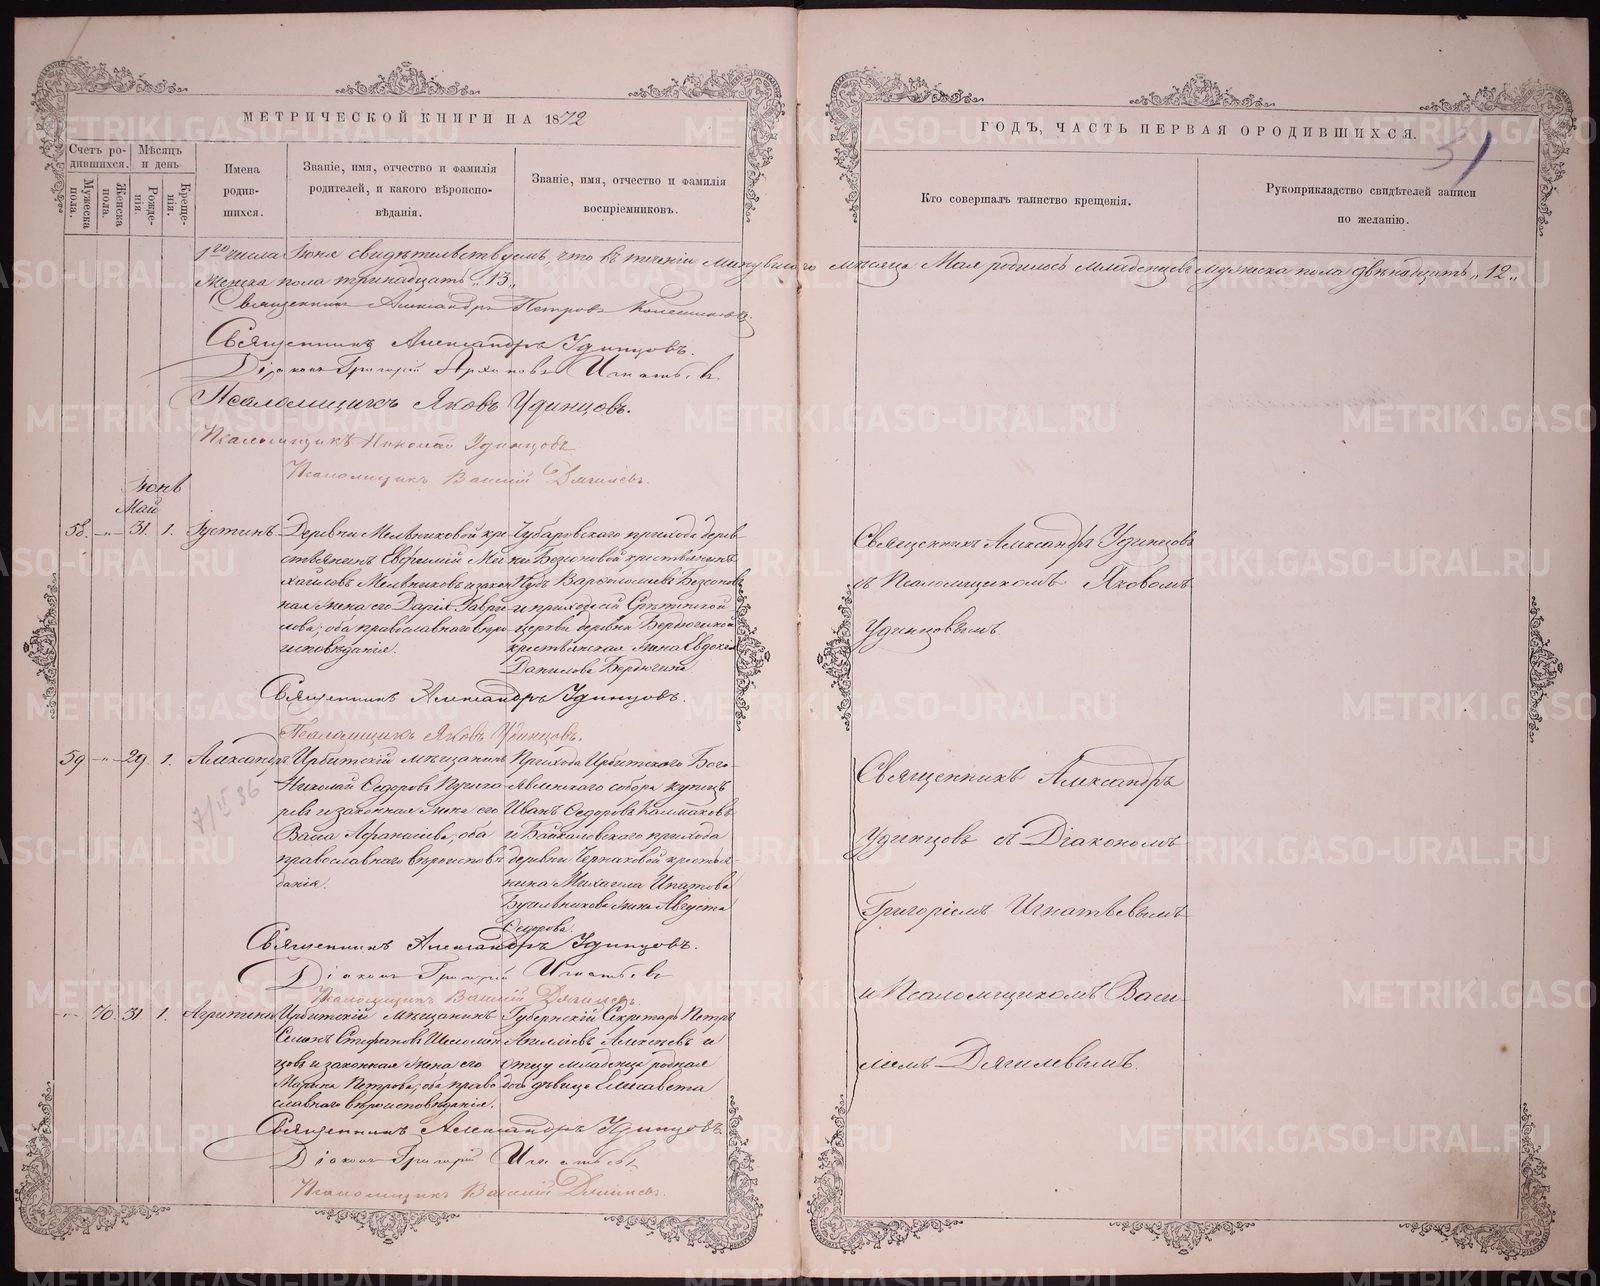 МЕТРИЧЕСКОЙ КНИГИ НА 1872
ГОДЪ, ЧАСТЬ ПЕРВАЯ О РОДИВШИХСЯ.
51
Счетъ ро-
дившихся.
Мѣсяцъ
и день
Мужеска
пола.
Женска
пола.
Рожде-
нія.
Креще-
нія.
Имена
родив-
шихся.
Званіе, имя, отчество и фамилія
родителей, и какого вѣроиспо-
вѣданія.
Званіе, имя, отчество и фамилія
воспріемниковъ.
Кто совершалъ таинство крещенія.
Рукоприкладство свидѣтелей записи
по желанію.
1го числа Іюня свидѣтельствуемъ, что въ теченіи минувшаго мѣсяца Мая родилось младенцевъ мужеска пола двѣнадцать „12„
женска пола тринадцать „13„
Священникъ Александръ Петровъ
Священникъ Александръ Удинцовъ.
Діаконъ Григорій Игнатьевъ
Псаломщикъ Яковъ Удинцовъ.
Псаломщикъ Николай Удинцовъ
Псаломщикъ Василій Дягилевъ.
Іюнь
Май
58. -„- 31. 1. Іустинъ
Деревни Мельниковой кре-
стьянинъ Евфимій Ми-
хаиловъ Мельниковъ и закон-
ная жена его Дарія Гаври-
лова; оба православнаго вѣро-
исповѣданія.
Чубаровскаго прихода дерев-
ни Безсоновой крестьянинъ
Варѳоломеевъ Безсоновъ
и прихода сей Срѣтенской
церкви деревни Бердюгиной
крестьянская жена Евдокія
Данилова Бердюгина
Священникъ Александръ Удинцовъ
съ Псаломщикомъ Яковомъ
Удинцовымъ.
Священникъ Александръ Удинцовъ.
Псаломщикъ Яковъ Удинцовъ.
59 -„- 29. 1. Александръ
7/II 36
Ирбитскій мѣщанинъ
Николай Ѳедоровъ
и законная жена его
Васса Аѳанасьева; оба
православнаго вѣроисповѣ-
данія.
Прихода Ирбитскаго Бого-
явленскаго собора купецъ
Иванъ Ѳедоровъ Колмаковъ
и Байкаловскаго прихода
деревни Чернаковой крестья-
нина Михаила Ипатова
жена Августа
Ѳедорова.
Священникъ Александръ
Удинцовъ съ Діакономъ
Григоріемъ Игнатьевымъ
и Псаломщикомъ Васи-
ліемъ Дягилевымъ.
Священникъ Александръ Удинцовъ.
Діаконъ Григорій Игнатьевъ
Псаломщикъ Василій Дягилевъ.
-„- 70. 31. 1. Агрипина
Ирбитскій мѣщанинъ
Семенъ Стефановъ Шеломен-
цовъ и законная жена его
Марина Петрова; оба право-
славнаго вѣроисповѣданія.
Губернскій Секретарь Петръ
Алексѣевъ и
отцу младенца родная
дѣвица Елисавета
Священникъ Александръ Удинцовъ.
Діаконъ Григорій Игнатьевъ
Псаломщикъ Василій Дягилевъ.
METRIKI.GASO-URAL.RU